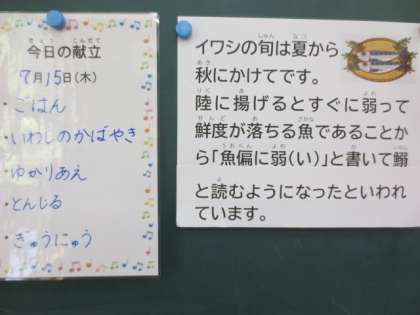 今日の献立
7月15日(木)
・ごはん
・いわしのかばやき
・ゆかりあえ
・とんじる
・ぎゅうにゅう
イワシの旬は夏から
秋にかけてです。
陸に揚げるとすぐに弱って
鮮度が落ちる魚であることか
ら「魚偏に弱(い)」と書いて鰯
と読むようになったといわれ
ています。